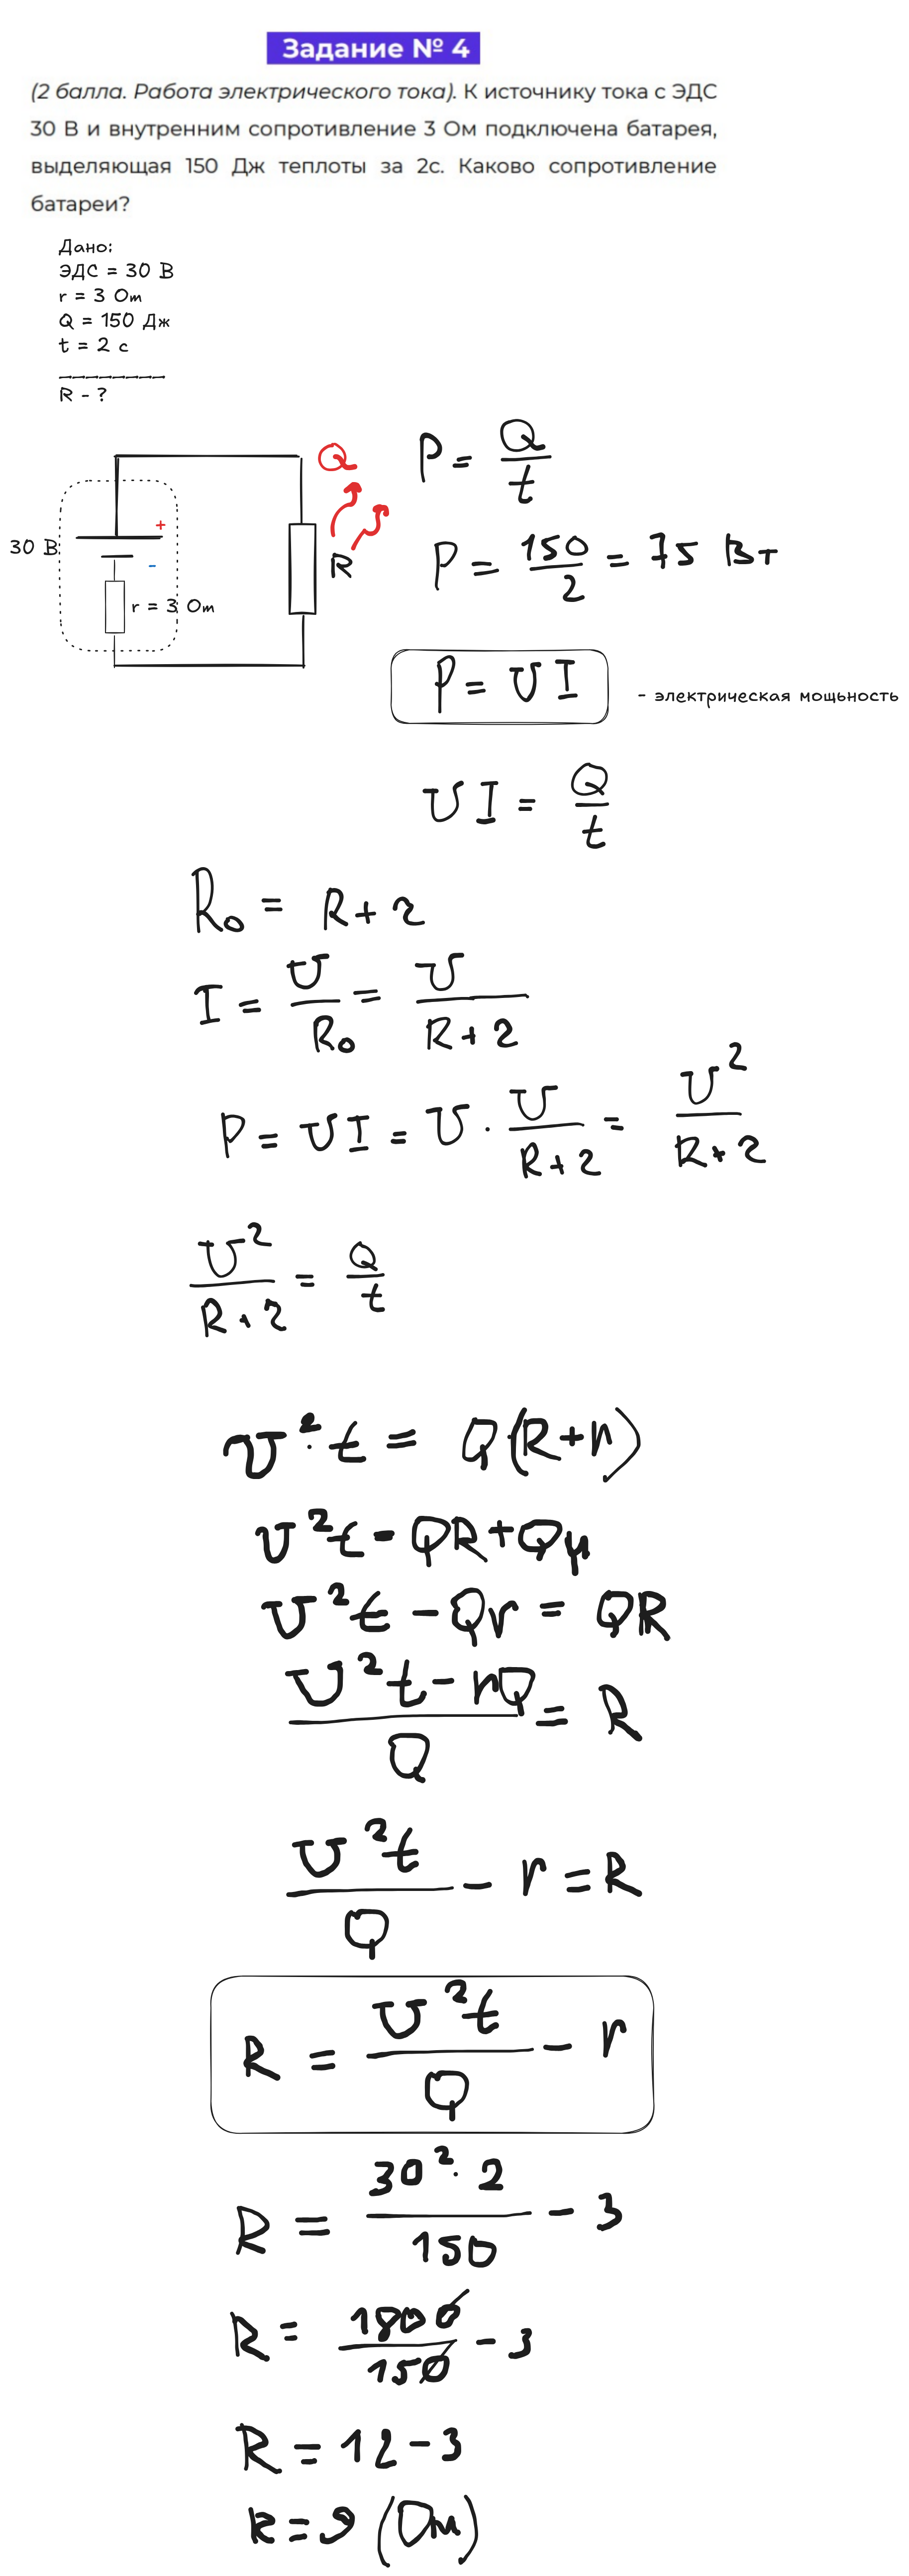 Задание № 4
(2 балла. Работа электрического тока). К источнику тока с ЭДС
30 В и внутренним сопротивление 3 Ом подключена батарея,
выделяющая 150 Дж теплоты за 2с. Каково сопротивление
батареи?
Дано:
ЭДС = 30 В
r = 3 Ом
Q = 150 Дж
t = 2 с
________
R - ?
Q
+
30 В
-
r = 3 Ом
R
P = Q/t
P = 150/2 = 75 Вт
P = UI
- электрическая мощьность
UI = Q/t
R₀ = R + r
I = U/R₀ = U/(R + r)
P = UI = U · U/(R + r) = U²/(R + r)
U²/(R + r) = Q/t
U² · t = Q(R + r)
U²t = QR + Qr
U²t - Qr = QR
(U²t - rQ)/Q = R
U²t/Q - r = R
R = U²t/Q - r
R = 30² · 2/150 - 3
R = 1800/150 - 3
R = 12 - 3
R = 9 (Ом)